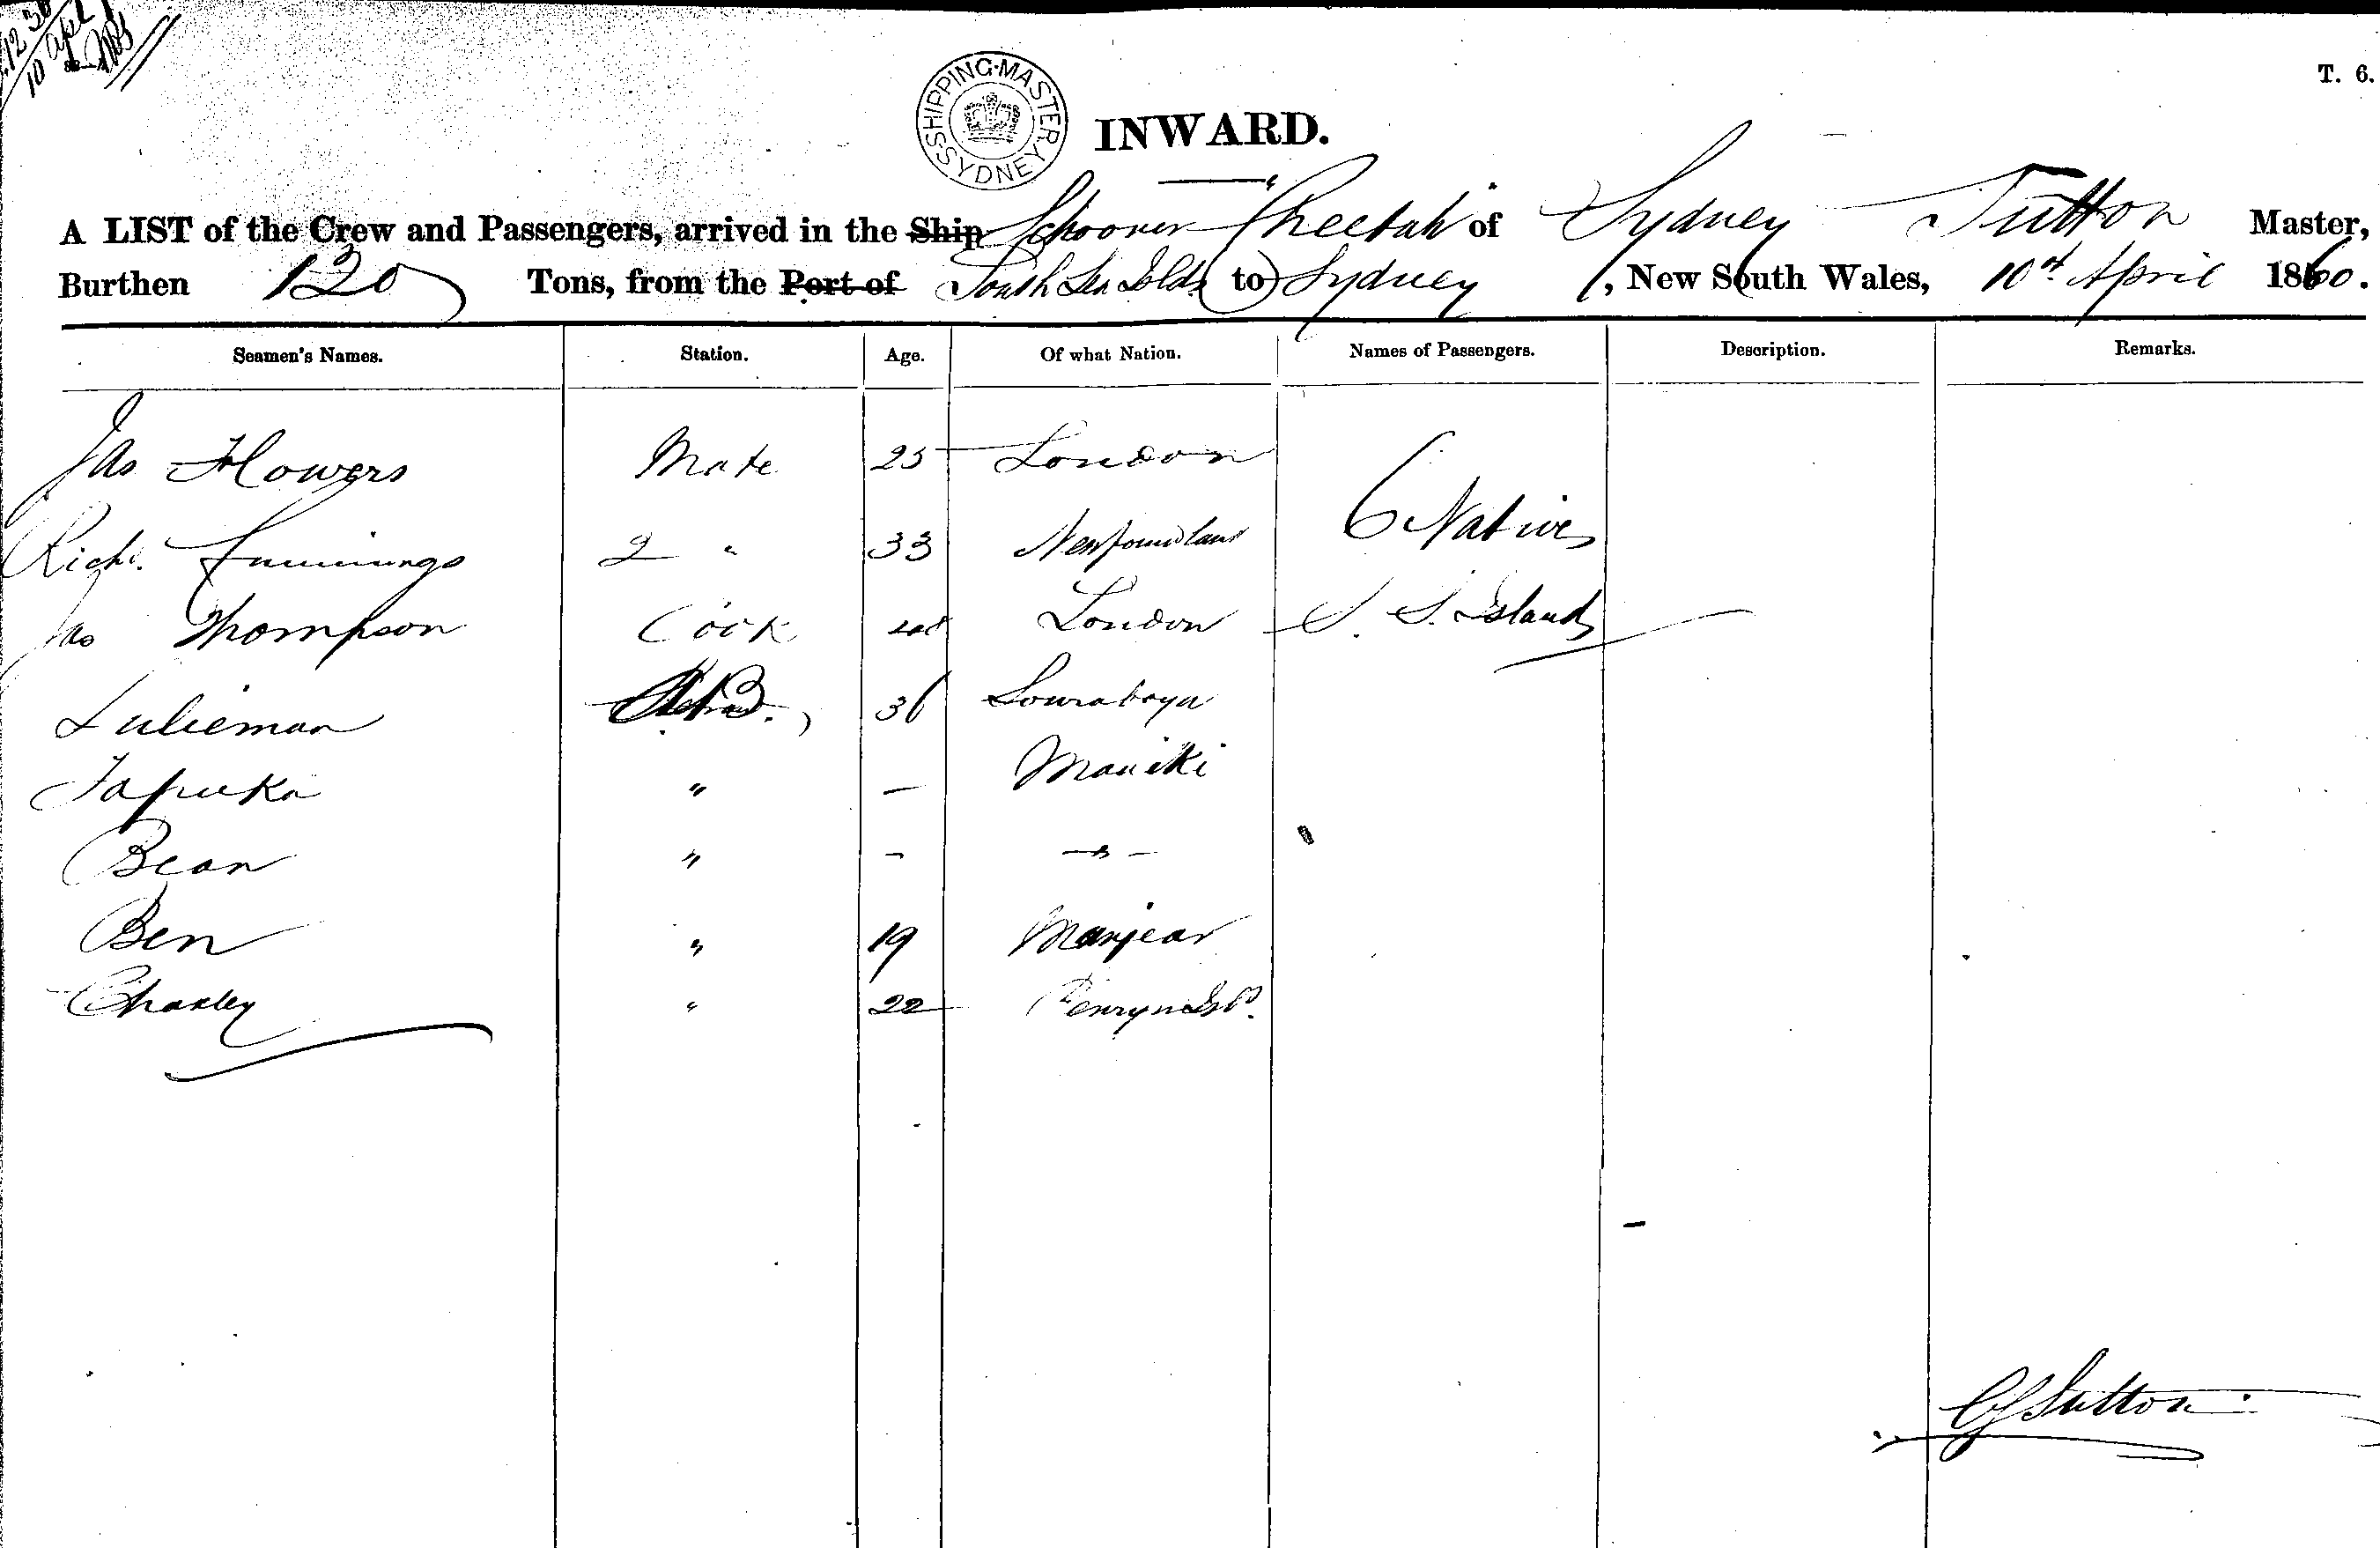 12 30
10 Apl
SHIPPING MASTER SYDNEY
T. 6.
INWARD.
A LIST of the Crew and Passengers, arrived in the Ship Schooner Cheetah of Sydney Sutton Master,
Burthen 120 Tons, from the Port of South Sea Islds to Sydney, New South Wales, 10th April 1860.
Seamen's Names. Station. Age. Of what Nation. Names of Passengers. Description. Remarks.
Jas Flowers Mate 25 London
6 Natives
Richd. Jummings 2 " 33 Newfoundland
Jas Thompson Cook London S. S. Islands
Sulieman AB. 36 Sourabaya
Tapuka " - Maniki
Bean " - - " -
Ben " 19 Manjear
Charley " 22 Penryn Isd.
CJ Sutton